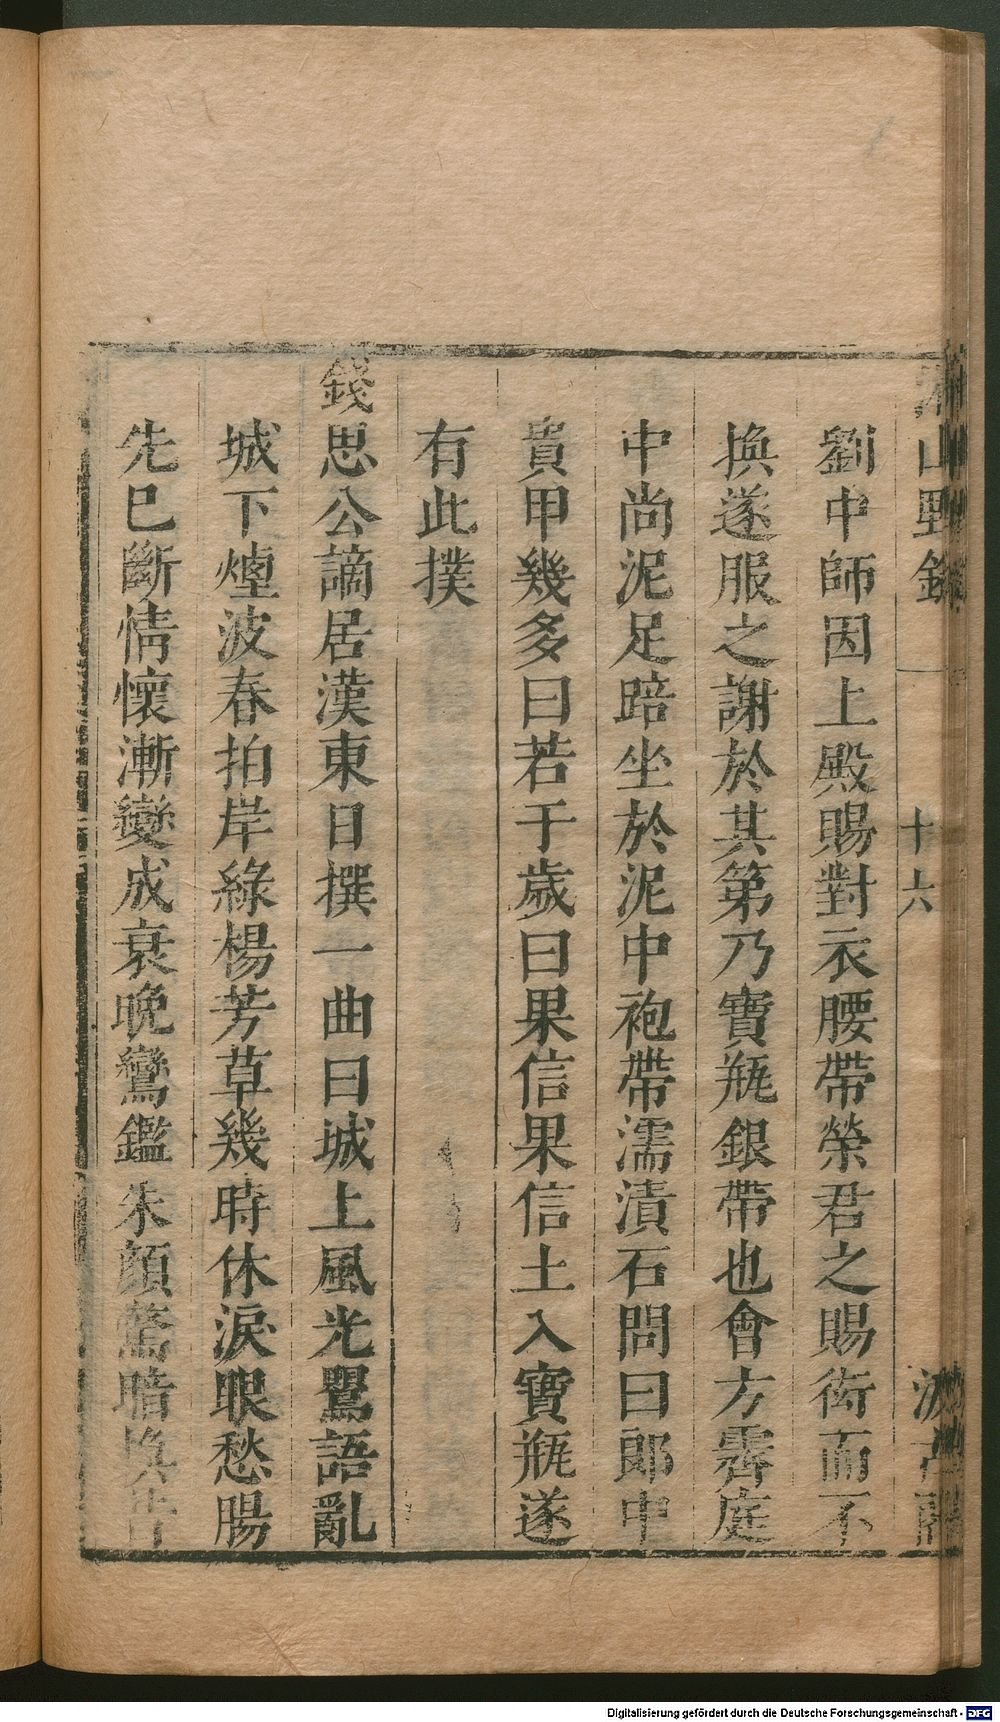 山野錄
十六
劉中師因上殿賜對衣腰帶榮君之賜衒而不
換遂服之謝於其第乃寶瓶銀帶也會方霽庭
中尚泥足踣坐於泥中袍帶濡漬石問曰郎中
貴甲幾多曰若干歲曰果信果信土入寶瓶遂
有此撲
錢思公謫居漢東日撰一曲曰城上風光鸎語亂
城下煙波春拍岸綠楊芳草幾時休淚眼愁腸
先巳斷情懷漸變成衰晚鸞鑑朱顔驚暗換昔
Digitalisierung gefördert durch die Deutsche Forschungsgemeinschaft - DFG